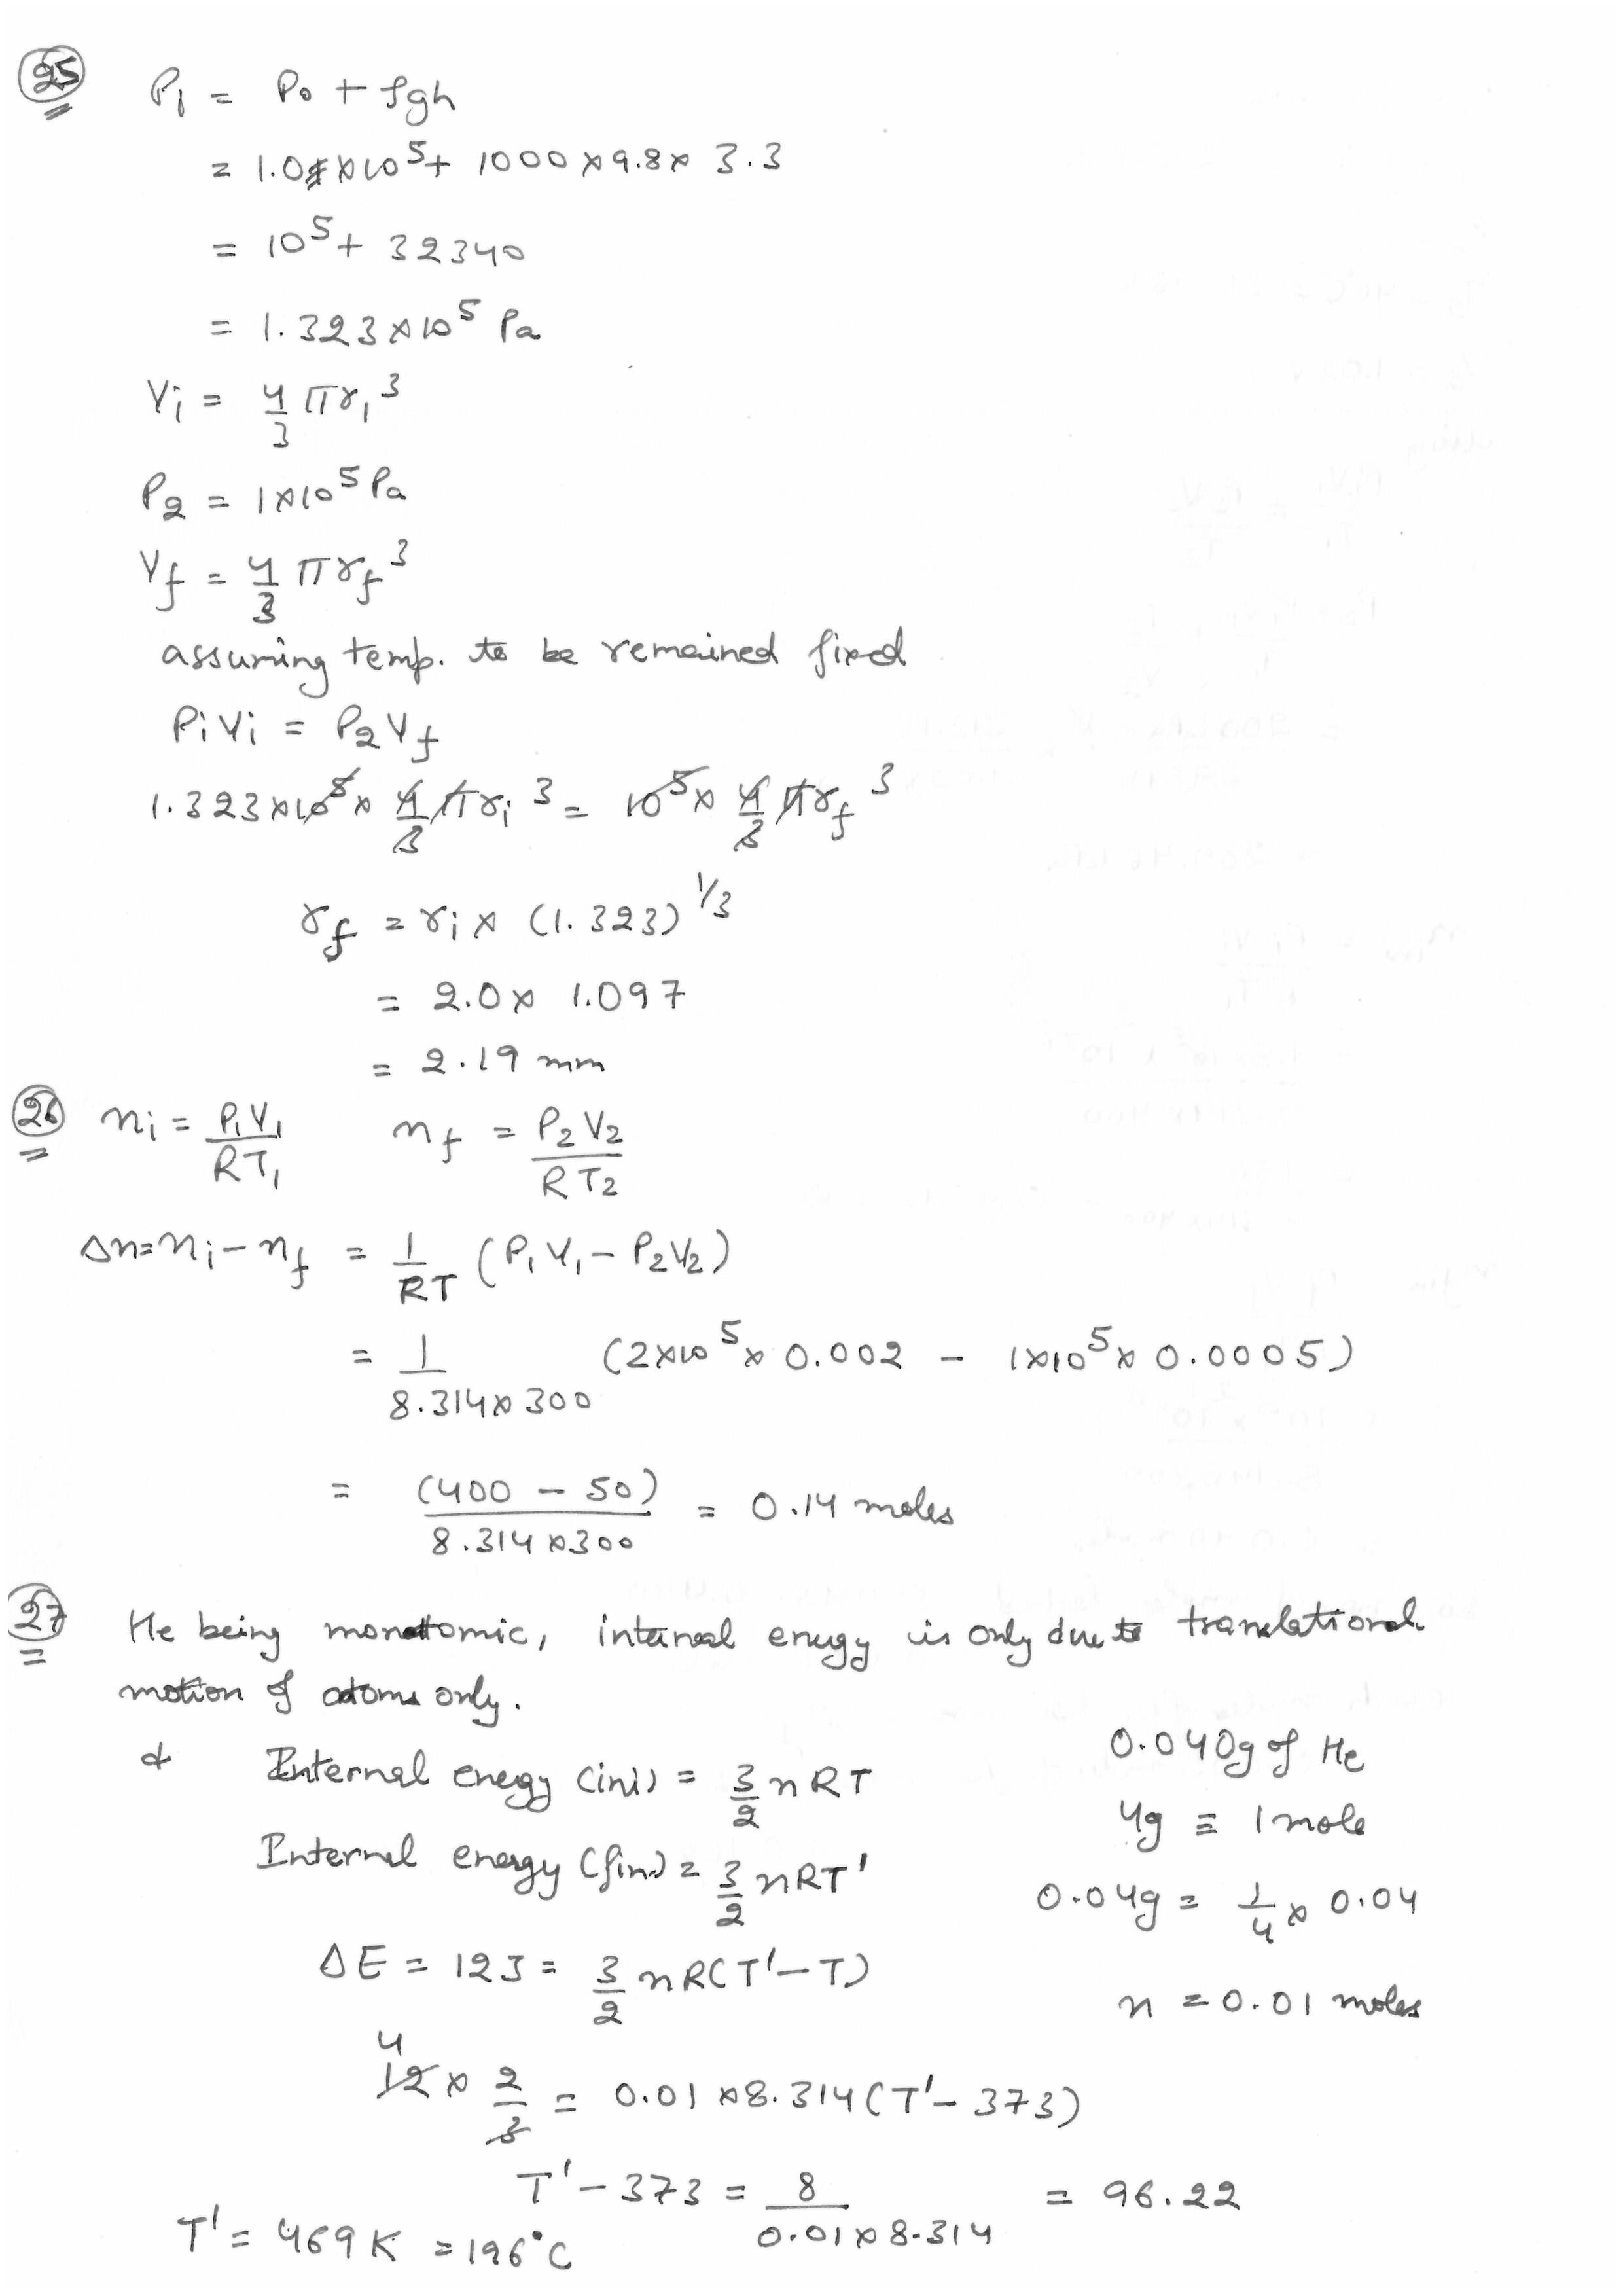 25 P1 = P0 + ρgh
= 1.0 × 10^5 + 1000 × 9.8 × 3.3
= 10^5 + 32340
= 1.323 × 10^5 Pa
Vi = 4/3 πr1^3
P2 = 1 × 10^5 Pa
Vf = 4/3 πrf^3
assuming temp. to be remained fixed
PiVi = P2Vf
1.323 × 10^5 × 4/3 πri^3 = 10^5 × 4/3 πrf^3
rf = ri × (1.323)^1/3
= 2.0 × 1.097
= 2.19 mm
26 ni = P1V1/RT1 nf = P2V2/RT2
Δn = ni - nf = 1/RT (P1V1 - P2V2)
= 1/8.314 × 300 (2 × 10^5 × 0.002 - 1 × 10^5 × 0.0005)
= (400 - 50)/8.314 × 300 = 0.14 moles
27 He being monatomic, internal energy is only due to translational
motion of atoms only.
& Internal energy (ini) = 3/2 nRT
Internal energy (fin) = 3/2 nRT'
ΔE = 12J = 3/2 nR(T' - T)
4
12 × 2/3 = 0.01 × 8.314 (T' - 373)
T' - 373 = 8/0.01 × 8.314 = 96.22
T' = 469 K = 196°C
0.040g of He
4g ≡ 1 mole
0.04g = 1/4 × 0.04
n = 0.01 moles